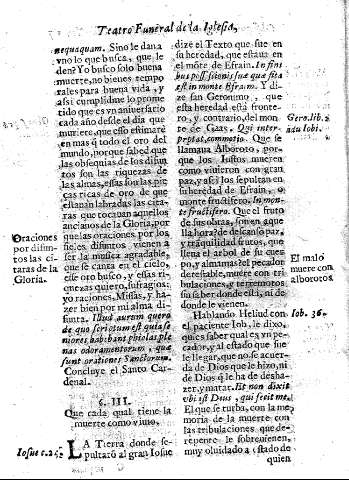 Teatro Funeral de la Iglesia,
nequaquam. Sino le dan a
vno lo que busca, que le
den? Yo busco solo buena
muerte, no bienes tempo
rales para buena vida, y
assi cumplidme lo prime
tido que es vn aniuersario
cada año desde el dia que
muriere, que esso estimarè
en mas q̃ todo el oro del
mundo, porque sabed que
las obsequias de los difun
tos son las riquezas de
las almas, essas son las pie
ças ricas de oro de que
estanàn labradas las cita-
ras que tocauan aquellos
ancianos de la Gloria, por
que las oraciones por los
fieles difuntos vienen a
ser la musica agradable,
que se canta en el cielo,
esse oro busco, y essas ri-
quezas quiero, sufragios;
yo raciones, Missas, y ha-
zer bien por mi alma di-
funta. Illud aurum quero
de quo scriptum est quia se
niores habebant phiolas ple
nas odoramentorum, que
sunt orationes Sanctorum.
Concluye el Santo Car-
denal.
§. III.
Que cada qual tiene la
muerte como viuio,
LA Tierra donde se-
pultarõ al gran Iosue
Oraciones
por difun-
tos las ci-
taras de la
Gloria.
Iosue c. 24.
dize el Texto que fue en
su heredad, que estaua en
el mõte de Efrain. In fini
bus possessionis suæ quæ sita
est in monte Efraim. Y di-
ze san Geronimo, que
esta heredad està fronte-
ro, y contrario, del mon
te de Gaas. Qui inter-
prętat, commotio. Que se
llamaua Alboroto, por-
que los Iustos mueren
como viuieron con gran
paz, y assi los sepultan en
su heredad de Efrain, o
monte fructifero. In mon-
te fructifero. Que el fruto
de sus obras, son en aque
lla hora de descanso paz,
y trãquilidad frutos, que
lleua el arbol de su cuer-
po, y alma: mas el pecador
derestable, muere con tri
bulaciones, y terremotos
sin saber donde està, ni de
donde le vienen.
Hablando Heliud con
el paciente Iob, le dixo,
quies saber qual es vn pe-
cador, y al estado que sue
le llegar, que no se acuer-
da de Dios que le hizo, ni
de Dios q̃ le ha de desha-
zer, y matar. Et non dixit
vbi est Deus, qui fecit me.
El que se turba, con la me
moria de la muerte con
las tribulaciones que de-
repente le sobreuienen,
muy oluidado a estado de
quien
Gero. lib. 2
adu Iobi.
El malo
muere con
alborotos.
Iob. 36.